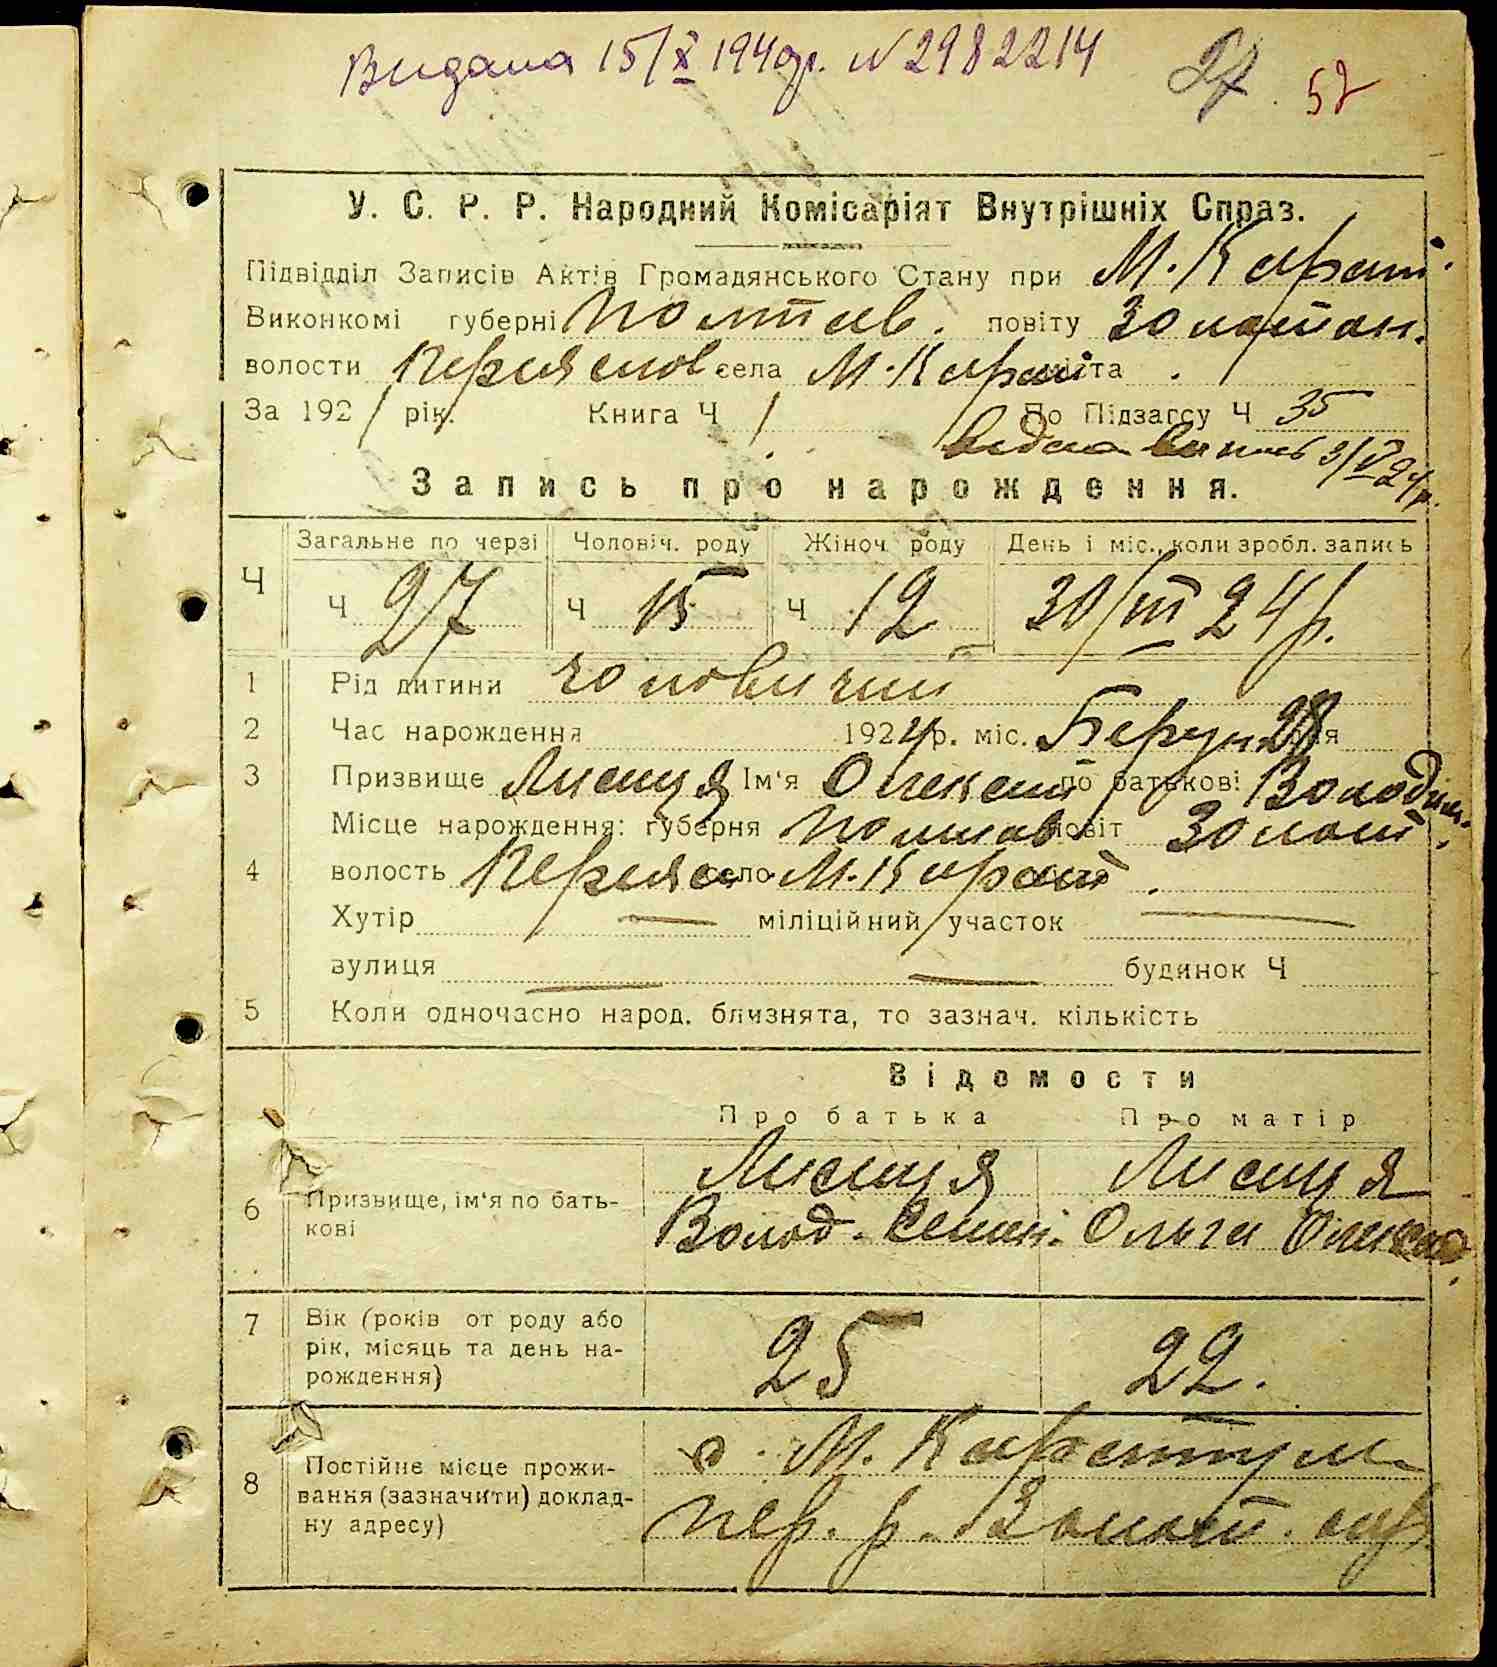 Видана 15/X 1940р. N 2982214 27 52
У. С. Р. Р. Народний Комісаріят Внутрішніх Справ.
Підвідділ Записів Актів Громадянського Стану при М. Карат.
Виконкомі губерні Полтав. повіту Золотон.
волости Переяслов села М. Карат міста
За 1921 рік. Книга Ч 1 По Підзагсу Ч 35
3/VI 24р.
Запись про нарождення.
Загальне по черзі Чоловіч. роду Жіноч. роду День і міс., коли зробл. запись
Ч Ч 27 Ч 15 Ч 12 30/III 24р.
1 Рід дитини чоловичий
2 Час нарождення 1924р. міс. Берун 28 дня
3 Призвище Лисиця Ім'я Олексій по батькові: Володим.
Місце нарождення: губерня Полтав повіт Золот.
4 волость Переяс село М. Карат.
Хутір — міліційний участок —
вулиця — — будинок Ч
5 Коли одночасно народ. близнята, то зазнач. кількість
Відомости
Про батька Про матір
6 Призвище, ім'я по бать-кові Лисиця Лисиця
Волод. Семен. Ольга Олекс
7 Вік (років от роду або рік, місяць та день на-рождення) 25 22.
8 Постійне місце прожи-вання (зазначити) доклад-ну адресу) с. М. Каратум
Пер. р. Золот. окр.